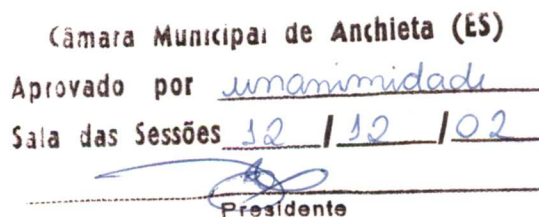 Câmara Municipal de Anchieta (ES)
Aprovado por unanimidade
Sala das Sessões 12 / 12 / 02
Presidente